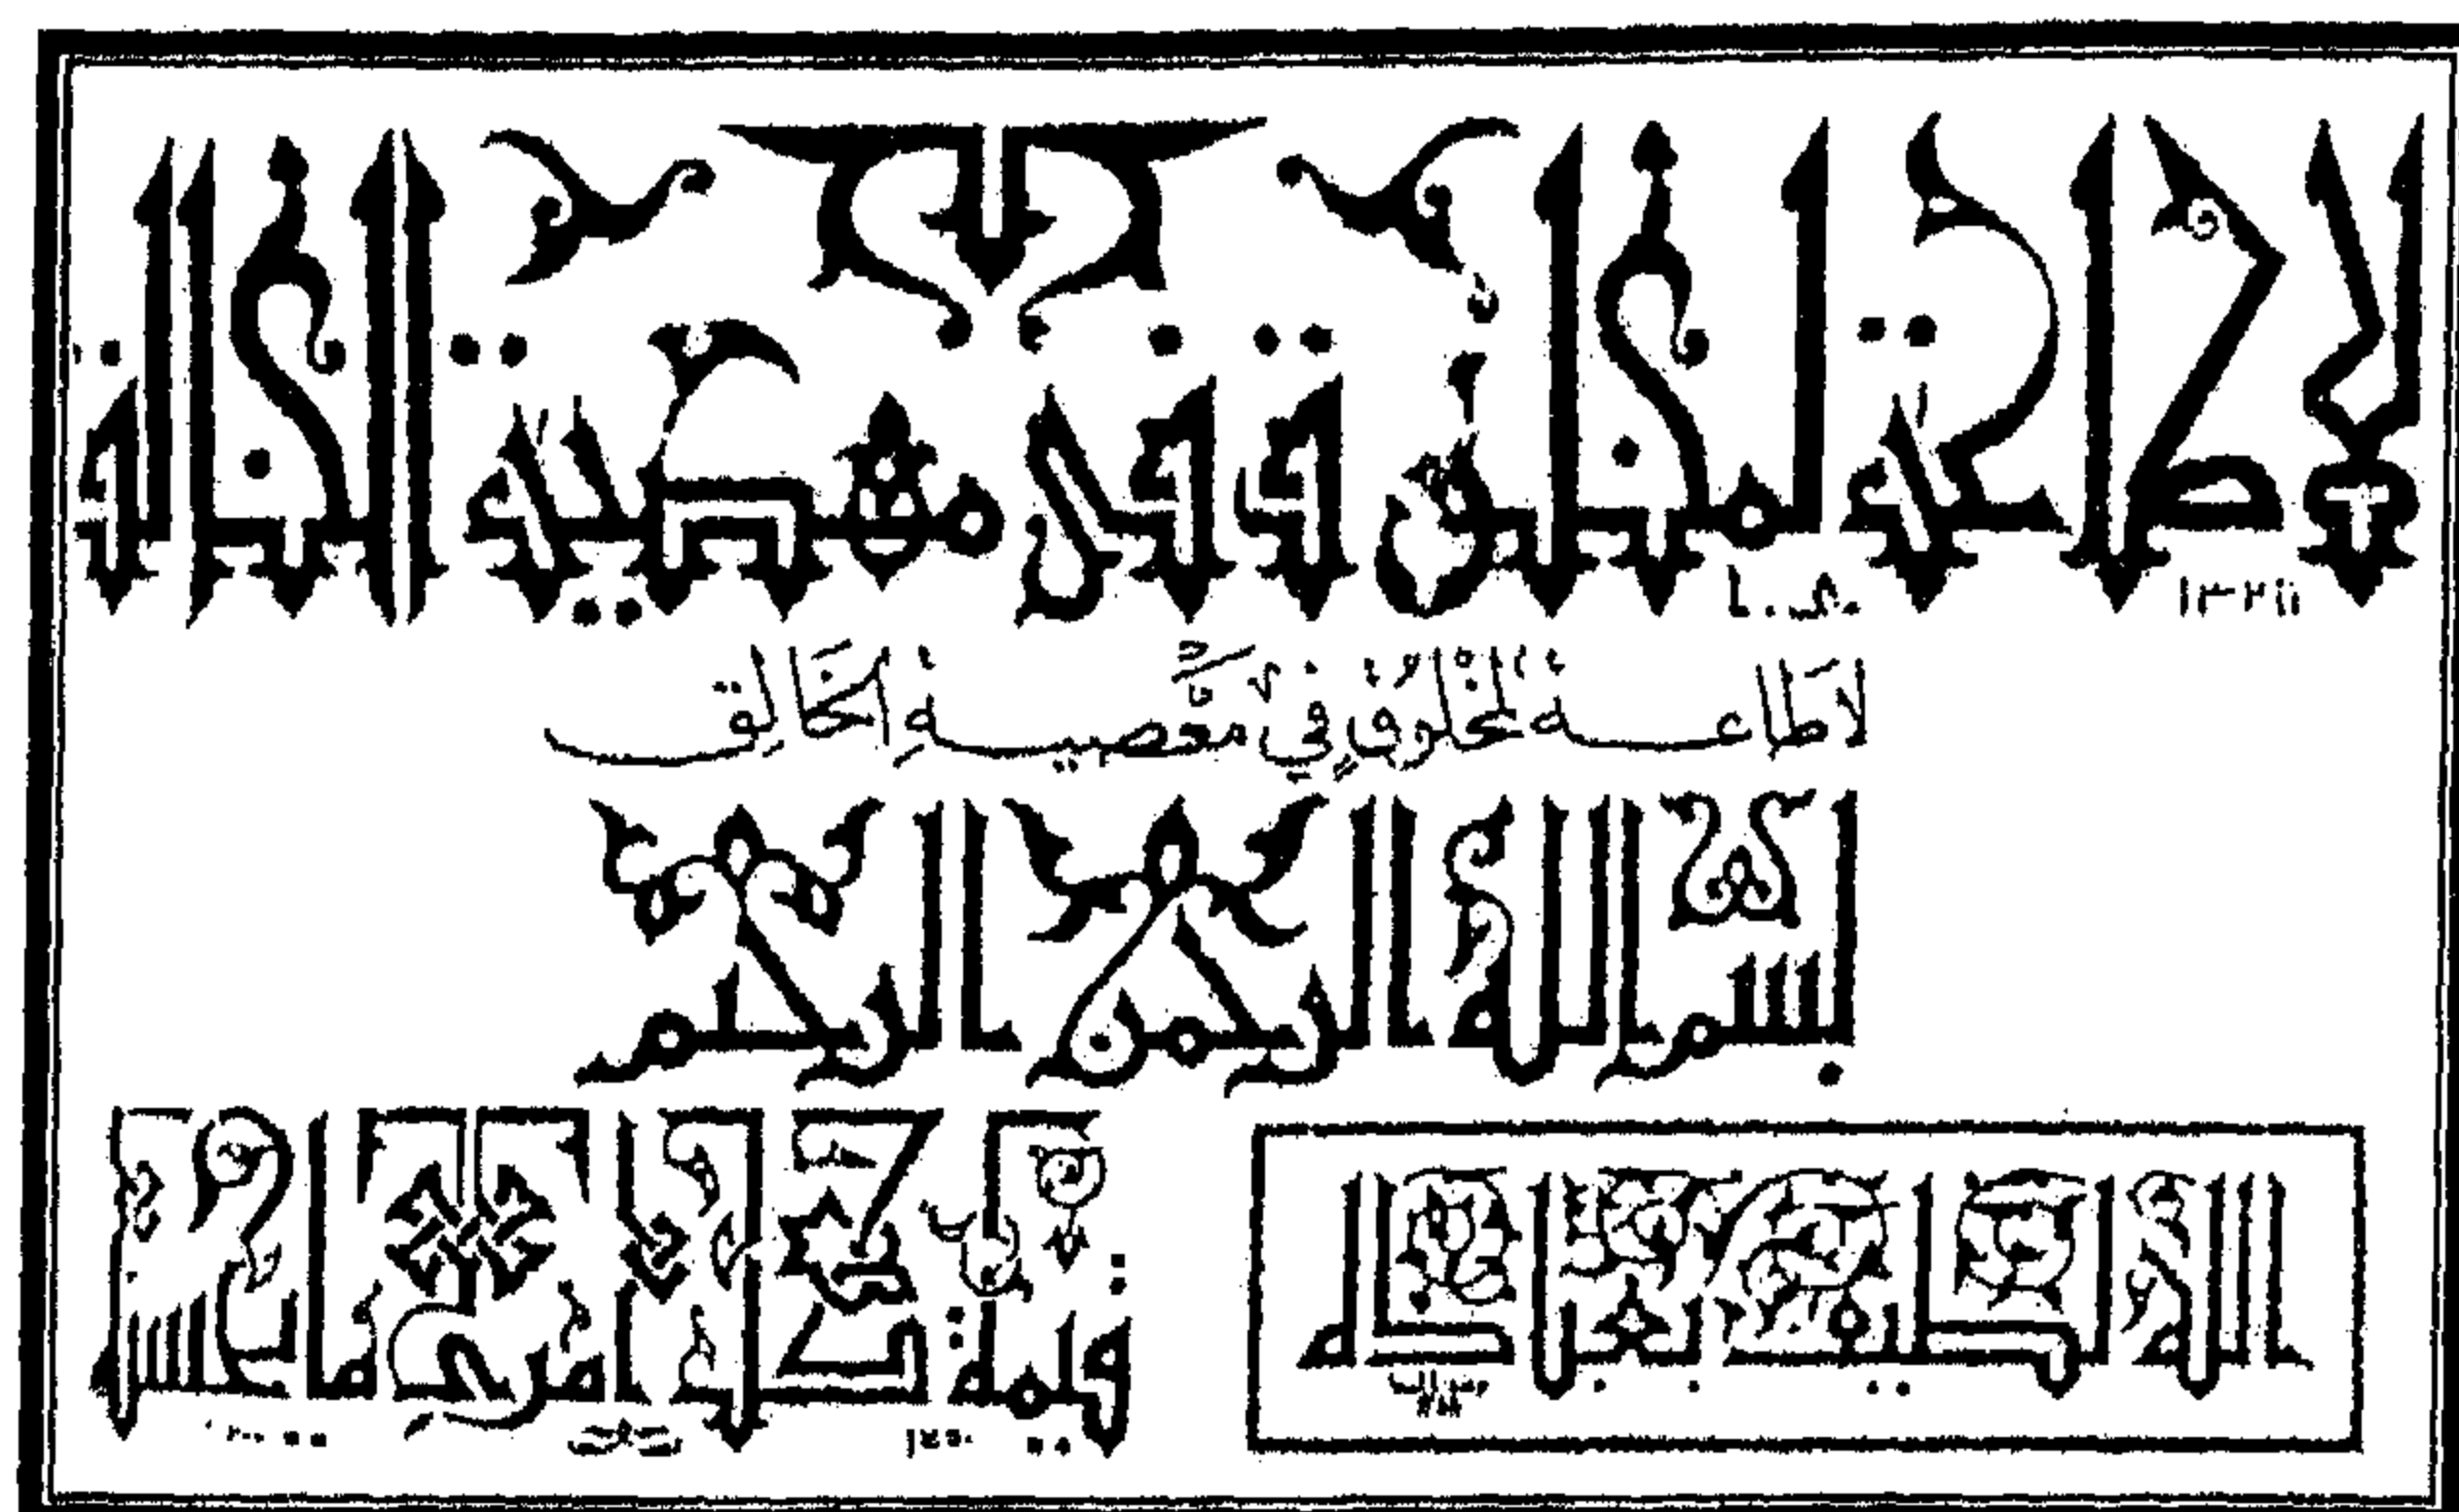 لا طاعة لمخلوق في معصية الخالق
لا طاعة لمخلوق في معصية الخالق
بسم الله الرحمن الرحيم
الله
قيمة كل امرئ ما يحسن